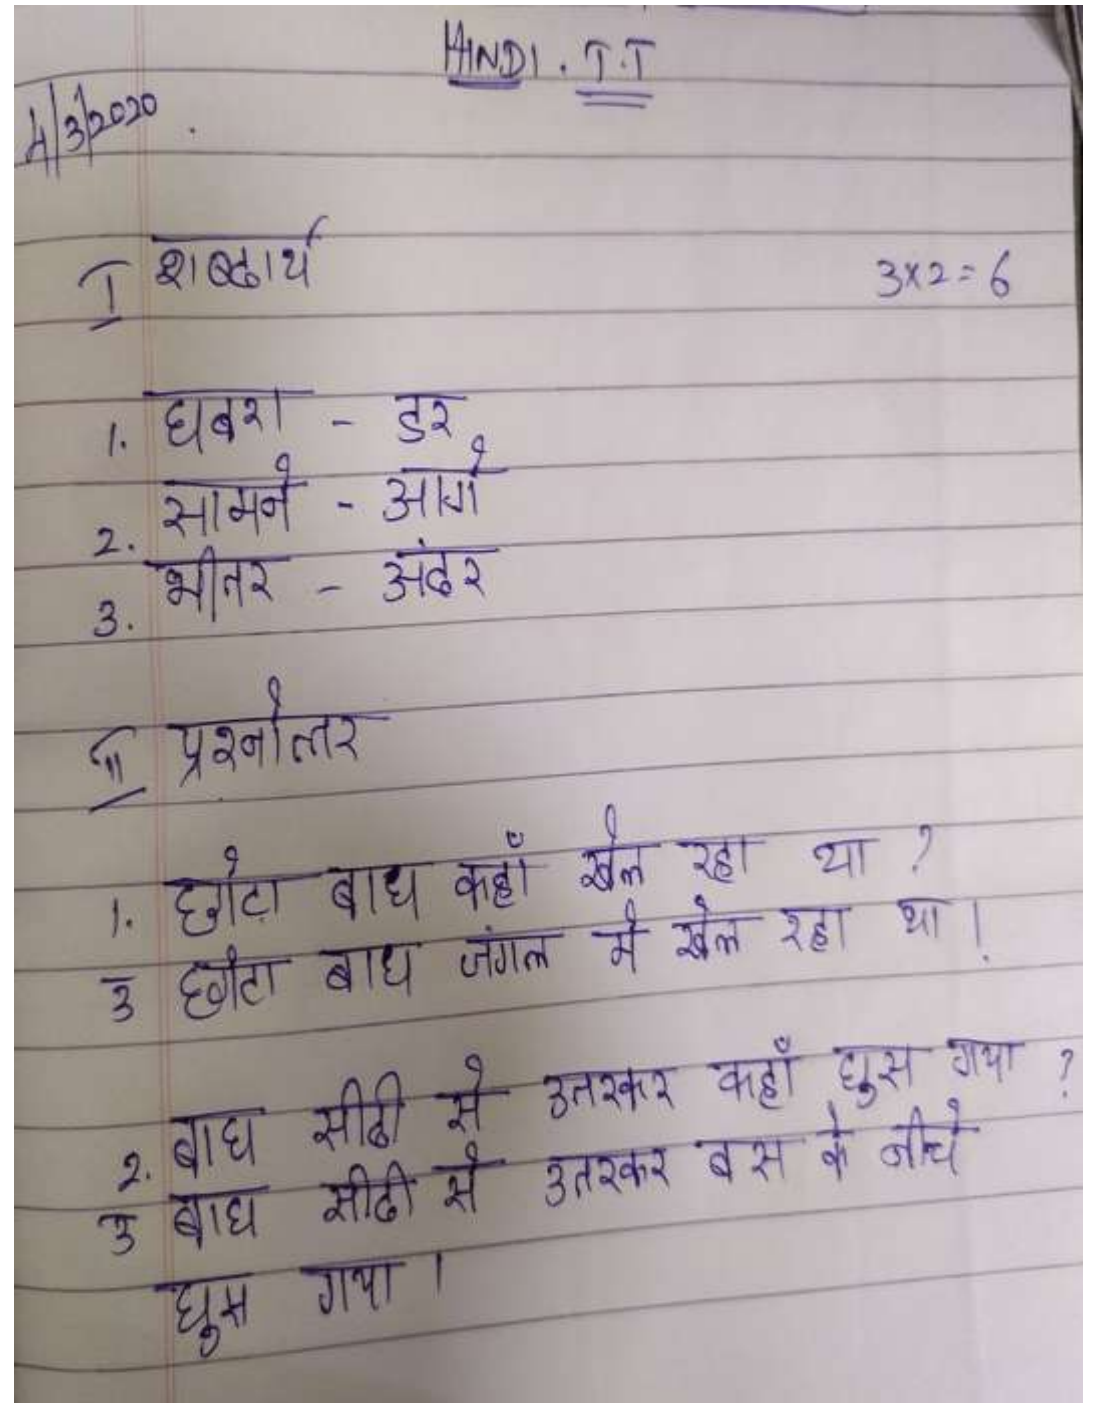 HINDI . T.T
4/3/2020
I शब्दार्थ 3x2=6
1. घबरा - डर
2. सामने - आगे
3. भीतर - अंदर
II प्रश्नोत्तर
1. छोटा बाघ कहाँ खेल रहा था ?
उ छोटा बाघ जंगल मे खेल रहा था ।
2. बाघ सीढी से उतरकर कहाँ घुस गया ?
उ बाघ सीढी से उतरकर बस के नीचे
घुस गया ।